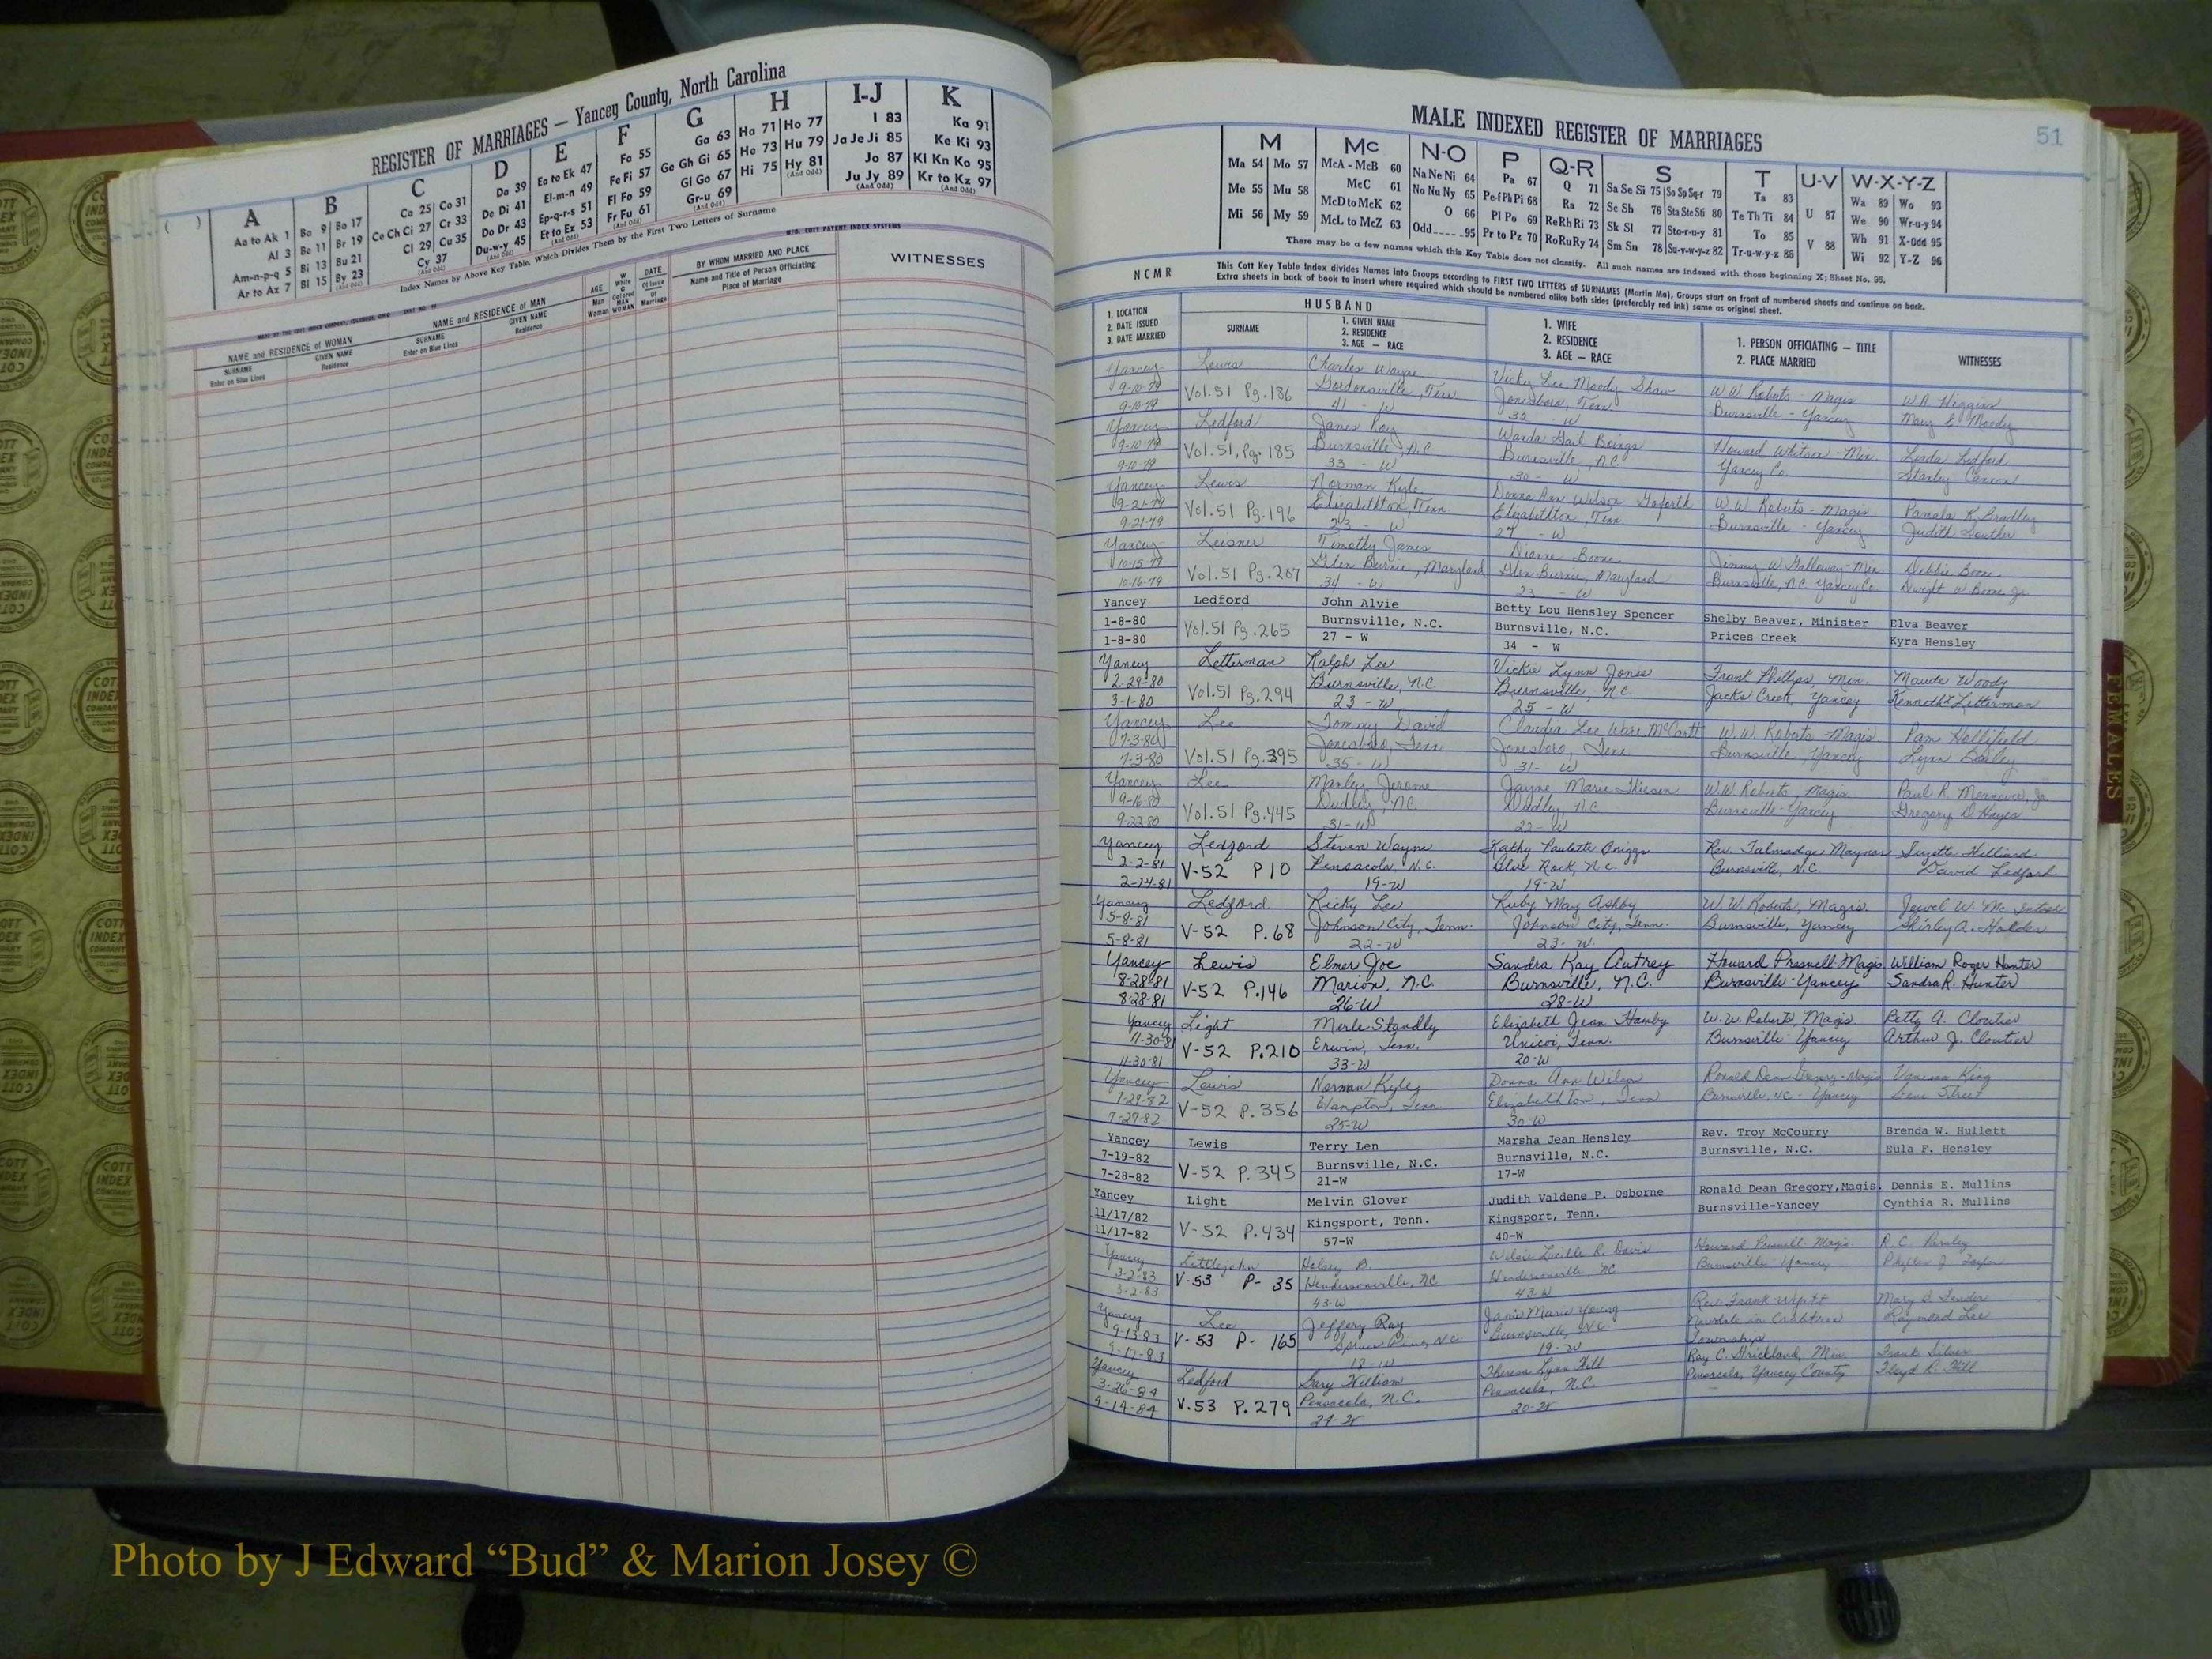 REGISTER OF MARRIAGES — Yancey County, North Carolina
A B C D E F G H I-J K
Aa to Ak 1 Ba 9 Bo 17 Ca 25 Co 31 Da 39 Ea to Ek 47 Fa 55 Ga 63 Ha 71 Ho 77 I 83 Ka 91
Al 3 Be 11 Br 19 Ce Ch Ci 27 Cr 33 De Di 41 El-m-n 49 Fe Fi 57 Ge Gh Gi 65 He 73 Hu 79 Ja Je Ji 85 Ke Ki 93
Am-n-p-q 5 Bi 13 Bu 21 Cl 29 Cu 35 Do Dr 43 Ep-q-r-s 51 Fl Fo 59 Gl Go 67 Hi 75 Hy 81 Jo 87 Kl Kn Ko 95
Ar to Az 7 Bl 15 By 23 Cy 37 Du-w-y 45 Et to Ez 53 Fr Fu 61 Gr-u 69 (And Odd) Ju Jy 89 Kr to Kz 97
Index Names by Above Key Table, Which Divides Them by the First Two Letters of Surname
MFG. COTT PATENT INDEX SYSTEMS
NAME and RESIDENCE of WOMAN
SURNAME
Enter on Blue Lines
GIVEN NAME
Residence
NAME and RESIDENCE of MAN
SURNAME
Enter on Blue Lines
GIVEN NAME
Residence
AGE
Man
Woman
W
White
C
Colored
MAN
WOMAN
DATE
Of Issue
Of
Marriage
BY WHOM MARRIED AND PLACE
Name and Title of Person Officiating
Place of Marriage
WITNESSES
MALE INDEXED REGISTER OF MARRIAGES
51
M Mc N-O P Q-R S T U-V W-X-Y-Z
Ma 54 Mo 57 McA - McB 60 Na Ne Ni 64 Pa 67 Q 71 Sa Se Si 75 So Sp Sq-r 79 Ta 83 Wa 89 Wo 93
Me 55 Mu 58 McC 61 No Nu Ny 65 Pe-f Ph Pi 68 Ra 72 Sc Sh 76 Sta Ste Sti 80 Te Th Ti 84 U 87 We 90 Wr-u-y 94
Mi 56 My 59 McD to McK 62 O 66 Pl Po 69 Re Rh Ri 73 Sk Sl 77 Sto-r-u-y 81 To 85 Wh 91 X-Odd 95
McL to McZ 63 Odd 95 Pr to Pz 70 Ro Ru Ry 74 Sm Sn 78 Su-v-w-y-z 82 Tr-u-w-y-z 86 V 88 Wi 92 Y-Z 96
There may be a few names which this Key Table does not classify. All such names are indexed with those beginning X; Sheet No. 95.
NCMR
This Cott Key Table Index divides Names into Groups according to FIRST TWO LETTERS of SURNAMES (Martin Ma), Groups start on front of numbered sheets and continue on back.
Extra sheets in back of book to insert where required which should be numbered alike both sides (preferably red ink) same as original sheet.
1. LOCATION
2. DATE ISSUED
3. DATE MARRIED
HUSBAND
SURNAME
1. GIVEN NAME
2. RESIDENCE
3. AGE — RACE
1. WIFE
2. RESIDENCE
3. AGE — RACE
1. PERSON OFFICIATING — TITLE
2. PLACE MARRIED
WITNESSES
Yancey Lewis Charles Wayne Vicky Lee Moody Shaw W.W. Roberts - Magis W.A. Higgins
9-10-79 Vol.51 Pg.186 Gordonsville, Tenn Jonesboro, Tenn Burnsville - Yancey Mary E. Moody
9-10-79 41 - W 32 - W
Yancey Ledford James Ray Wanda Gail Howard Whitson - Min. Linda Ledford
9-10-79 Vol.51, Pg.185 Burnsville, N.C. Burnsville, N.C. Yancey Co. Stanley
9-10-79 33 - W 30 - W
Yancey Lewis Norman Kyle Donna Ann Wilson Goforth W.W. Roberts - Magis Pamala K. Bradley
9-21-79 Vol.51 Pg.196 Elizabethton, Tenn Elizabethton, Tenn Burnsville - Yancey Judith
9-21-79 23 - W 27 - W
Yancey Leisner Timothy James Dianne Boone Jimmy W Galloway - Min Debbie Boone
10-15-79 Vol.51 Pg.207 Glen Burnie, Maryland Glen Burnie, Maryland Burnsville, N.C. Yancey Co. Dwight W. Boone Jr
10-16-79 34 - W 23 - W
Yancey Ledford John Alvie Betty Lou Hensley Spencer Shelby Beaver, Minister Elva Beaver
1-8-80 Vol.51 Pg.265 Burnsville, N.C. Burnsville, N.C. Prices Creek Kyra Hensley
1-8-80 27 - W 34 - W
Yancey Letterman Ralph Lee Vickie Lynn Jones Frank Phillips, Min. Maude Woody
2-29-80 Vol.51 Pg.294 Burnsville, N.C. Burnsville, N.C. Jacks Creek, Yancey Kenneth Letterman
3-1-80 23 - W 25 - W
Yancey Lee Tommy David Claudia Lee Ware W.W. Roberts - Magis Pam Hollifield
7-3-80 Vol.51 Pg.395 Jonesboro, Tenn Jonesboro, Tenn Burnsville, Yancey Lynn Bailey
7-3-80 35 - W 31 - W
Yancey Lee Manley Jerome Jayne Marie W.W. Roberts, Magis. Paul R.
9-16-80 Vol.51 Pg.445 Dudley, N.C. Dudley, N.C Burnsville-Yancey Gregory D Hayes
9-22-80 31-W 22-W
Yancey Ledford Steven Wayne Kathy Paulette Briggs Rev. Talmadge Suzette Hilliard
2-2-81 V-52 P10 Pensacola, N.C. Blue Rock, N.C. Burnsville, N.C. David Ledford
2-14-81 19-W 19-W
Yancey Ledford Ricky Lee Ruby May Ashby W.W. Roberts, Magis. Jewel W.
5-8-81 V-52 P.68 Johnson City, Tenn. Johnson City, Tenn. Burnsville, Yancey Shirley A. Holder
5-8-81 22-W 23-W
Yancey Lewis Elmer Joe Sandra Kay Autrey Howard Presnell-Magis. William Roger Hunter
8-28-81 V-52 P.146 Marion, N.C. Burnsville, N.C. Burnsville-Yancey Sandra R. Hunter
8-28-81 26-W 28-W
Yancey Light Merle Standly Elizabeth Jean Hamby W.W. Roberts, Magis. Betty A. Cloutier
11-30-81 V-52 P.210 Erwin, Tenn. Unicoi, Tenn. Burnsville-Yancey Arthur J. Cloutier
11-30-81 33-W 20-W
Yancey Lewis Norman Kyle Donna Ann Wilson Ronald Dean Gregory-Magis Vanessa King
7-29-82 V-52 P.356 Hampton, Tenn Elizabethton, Tenn Burnsville, NC - Yancey Street
7-29-82 25-W 30-W
Yancey Lewis Terry Len Marsha Jean Hensley Rev. Troy McCourry Brenda W. Hullett
7-19-82 V-52 P.345 Burnsville, N.C. Burnsville, N.C. Burnsville, N.C. Eula F. Hensley
7-28-82 21-W 17-W
Yancey Light Melvin Glover Judith Valdene P. Osborne Ronald Dean Gregory,Magis. Dennis E. Mullins
11/17/82 V-52 P.434 Kingsport, Tenn. Kingsport, Tenn. Burnsville-Yancey Cynthia R. Mullins
11/17-82 57-W 40-W
Yancey Littlejohn Lucille R. Davis Howard Presnell-Magis R.C.
3-2-83 V-53 P- 35 Hendersonville, NC Hendersonville, NC Burnsville Yancey Phyllis J
3-2-83 43-W 43-W
Yancey Lee Jeffery Ray Janie Marie Young Rev. Frank Mary
9-13-83 V-53 P- 165 Spruce Pine, N.C Burnsville, NC Newdale in Crabtree Raymond Lee
9-17-83 18-W 19-W Township
Yancey Ledford Gary William Theresa Lynn Hill Ray C. Strickland, Min. Frank Silver
3-26-84 V.53 P.279 Pensacola, N.C. Pensacola, N.C. Pensacola, Yancey County Floyd R. Hill
4-14-84 24-W 20-W
FEMALES
Photo by J Edward “Bud” & Marion Josey ©